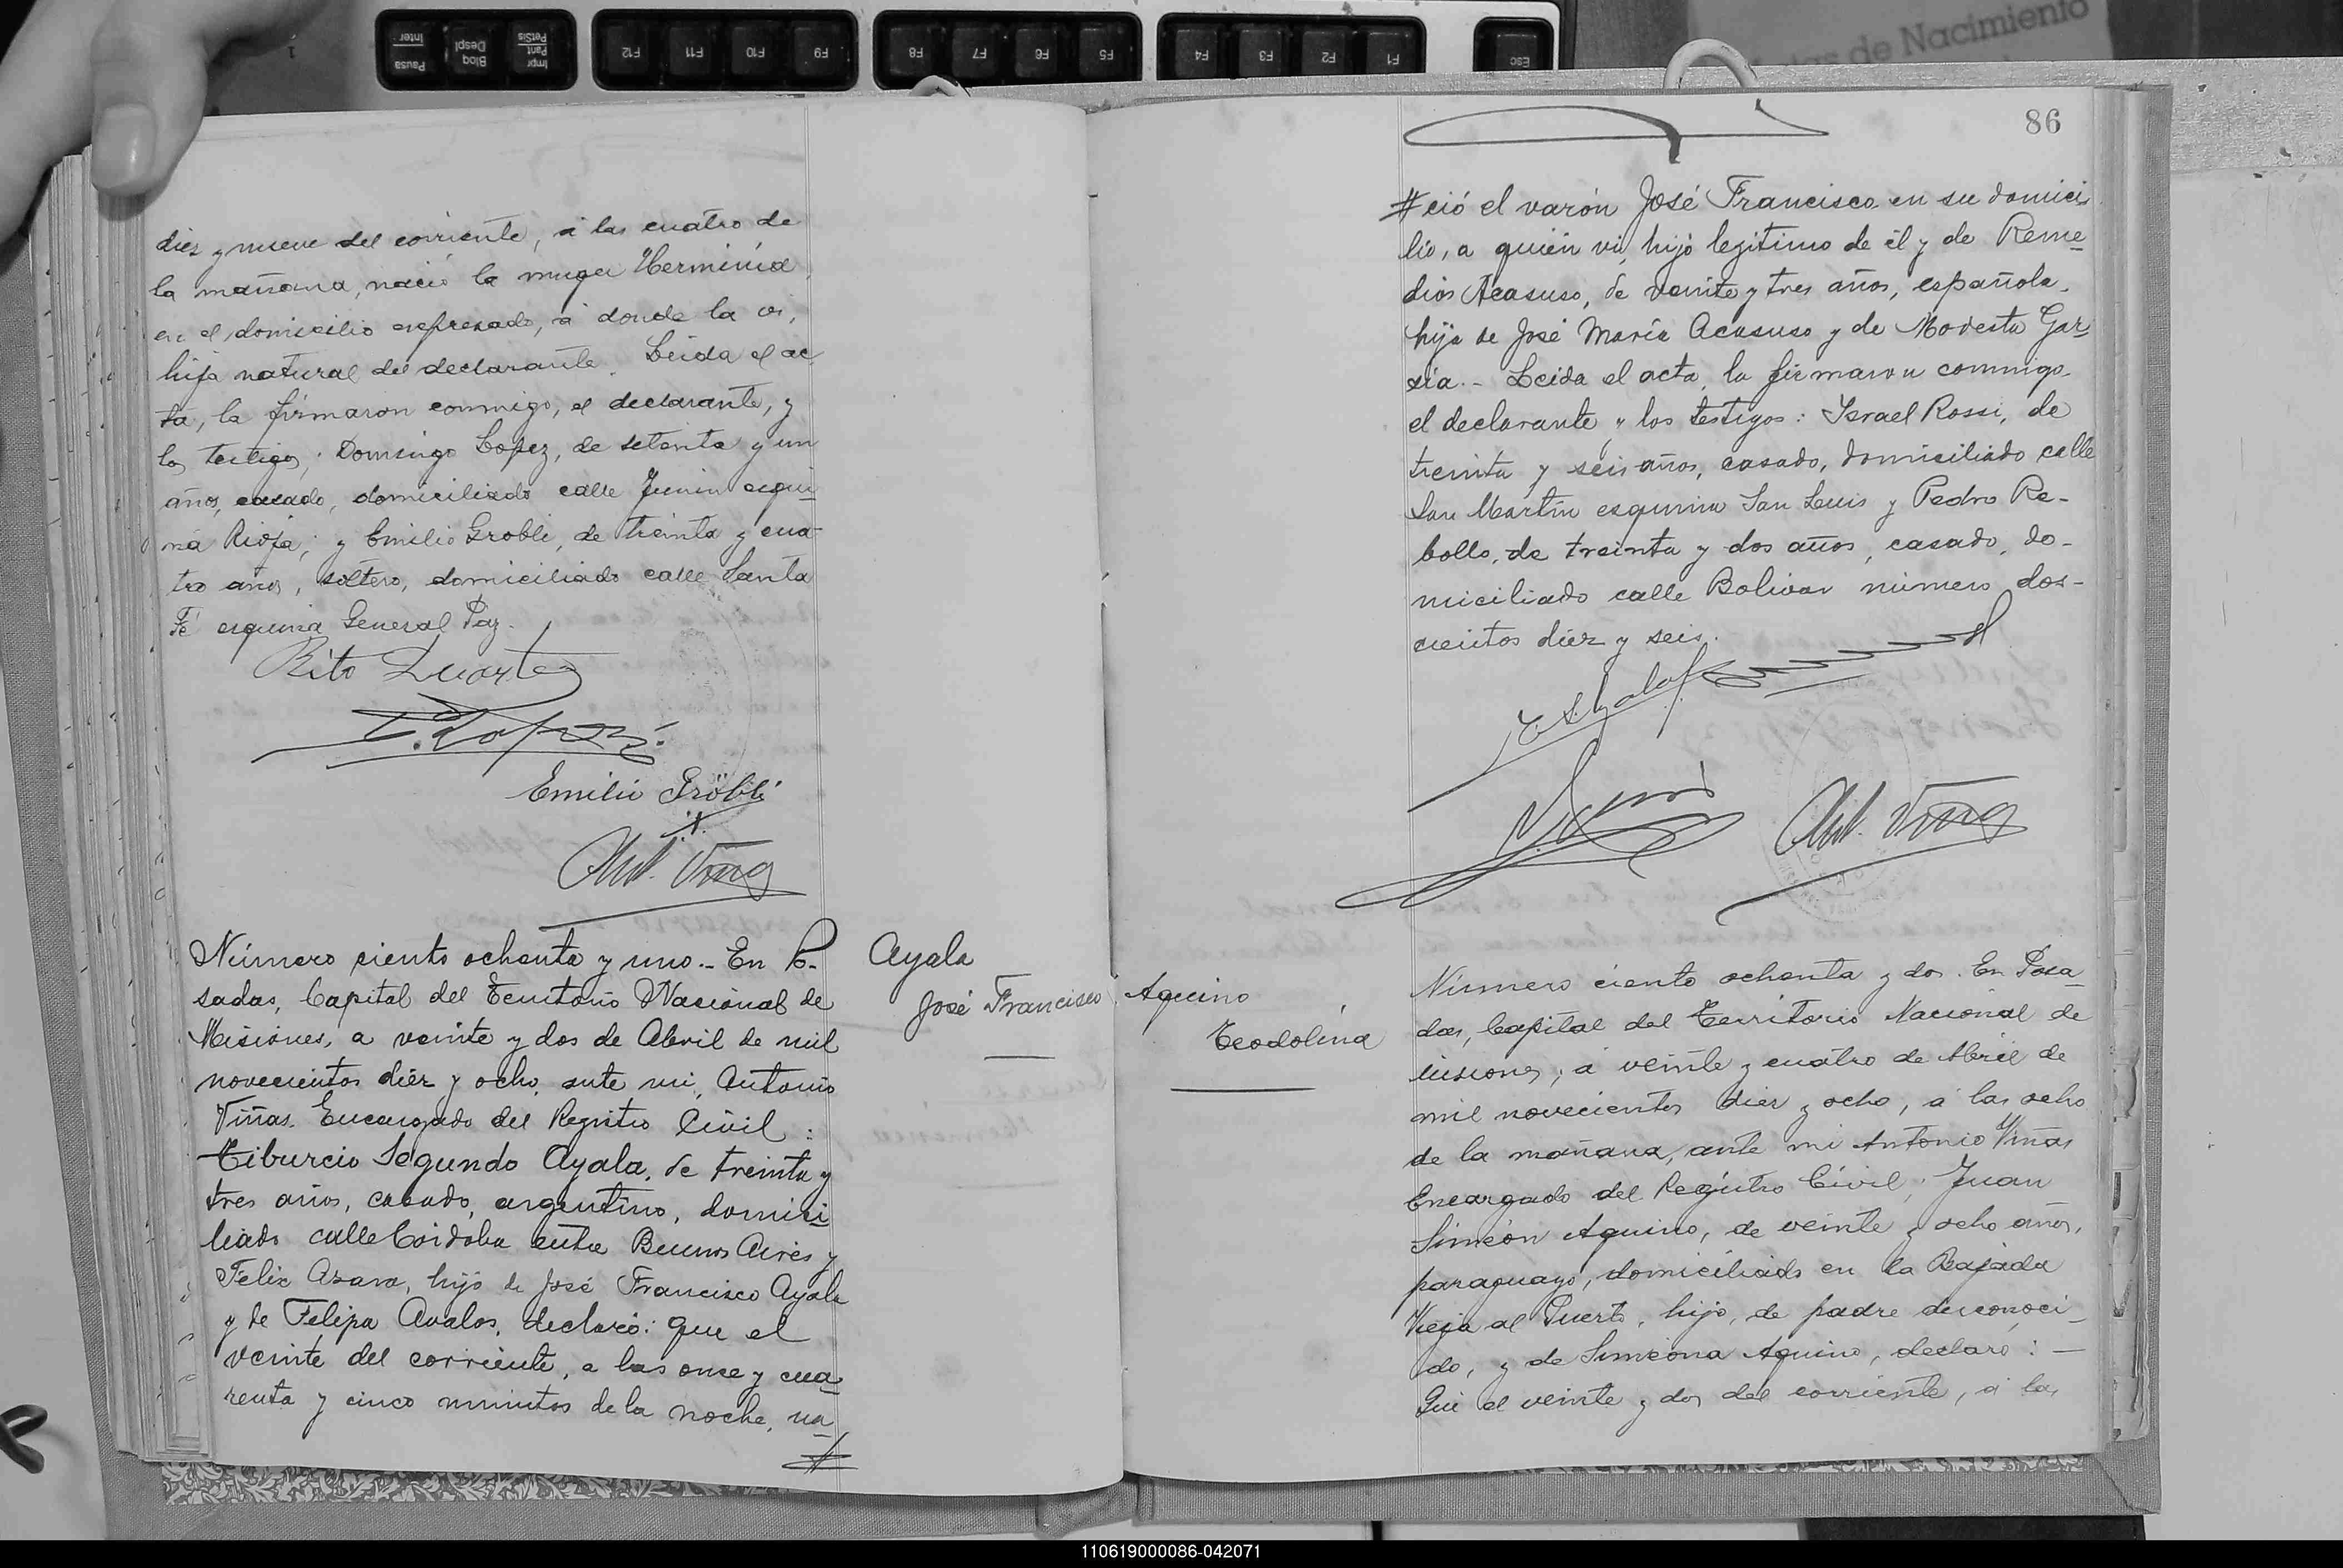 Inter
Pausa
Despl
Bloq
PetSis
Impr
Pant
F12
F11
F10
F9
F8
F7
F6
F5
F4
F3
F2
F1
Esc
de Nacimiento
diez y nueve del corriente, á las cuatro de
la mañana, nació la muger Herminia
en el domicilio expresado, á donde la vi,
hija natural del declarante. Leida el ac
ta, la firmaron conmigo, el declarante, y
los testigos: Domingo Lopez, de setenta y un
años, casado, domiciliado calle Junin esqui
na Rioja; y Emilio Grobli, de treinta y cua
tro años, soltero, domiciliado calle Santa
Fé esquina General Paz.
Rito Duarte
D. Lopez
Emilio Gröbli
Ant. Viñas
Número ciento ochenta y uno.- En Po-
sadas, Capital del Territorio Nacional de
Misiones, a veinte y dos de Abril de mil
novecientos diez y ocho, ante mi, Antonio
Viñas. Encargado del Registro Civil:
Tiburcio Segundo Ayala, de treinta y
tres años, casado, argentino, domici
liado calle Córdoba entre Buenos Aires y
Felix Azara, hijo de José Francisco Ayala
y de Felipa Avalos, declaró: que el
veinte del corriente, a las once y cua
renta y cinco minutos de la noche, na
#
Ayala
José Francisco
86
# ció el varón José Francisco en su domici
lio, a quién vi, hijo legítimo de él y de Reme-
dios Acasuso, de veinte y tres años, española,
hija de José María Acasuso y de Modesta Gar
sia.- Leida el acta, la firmaron conmigo
el declarante y los testigos: Israel Rossi, de
treinta y seis años, casado, domiciliado calle
San Martín esquina San Luis y Pedro Re-
bollo, de treinta y dos años, casado, do-
miciliado calle Bolivar número dos-
cientos diez y seis.
Ant. Viñas
Aquino
Teodolina
Número ciento ochenta y dos. En Posa
das, Capital del Territorio Nacional de
Misiones, á veinte y cuatro de Abril de
mil novecientos diez y ocho, á las ocho
de la mañana, ante mi Antonio Viñas
Encargado del Registro Civil; Juan
Simeón Aquino, de veinte y ocho años,
paraguayo, domiciliado en la Bajada
Vieja al Puerto, hijo, de padre desconoci
do, y de Simeona Aquino, declaró: —
Que el veinte y dos del corriente, á las
110619000086-042071